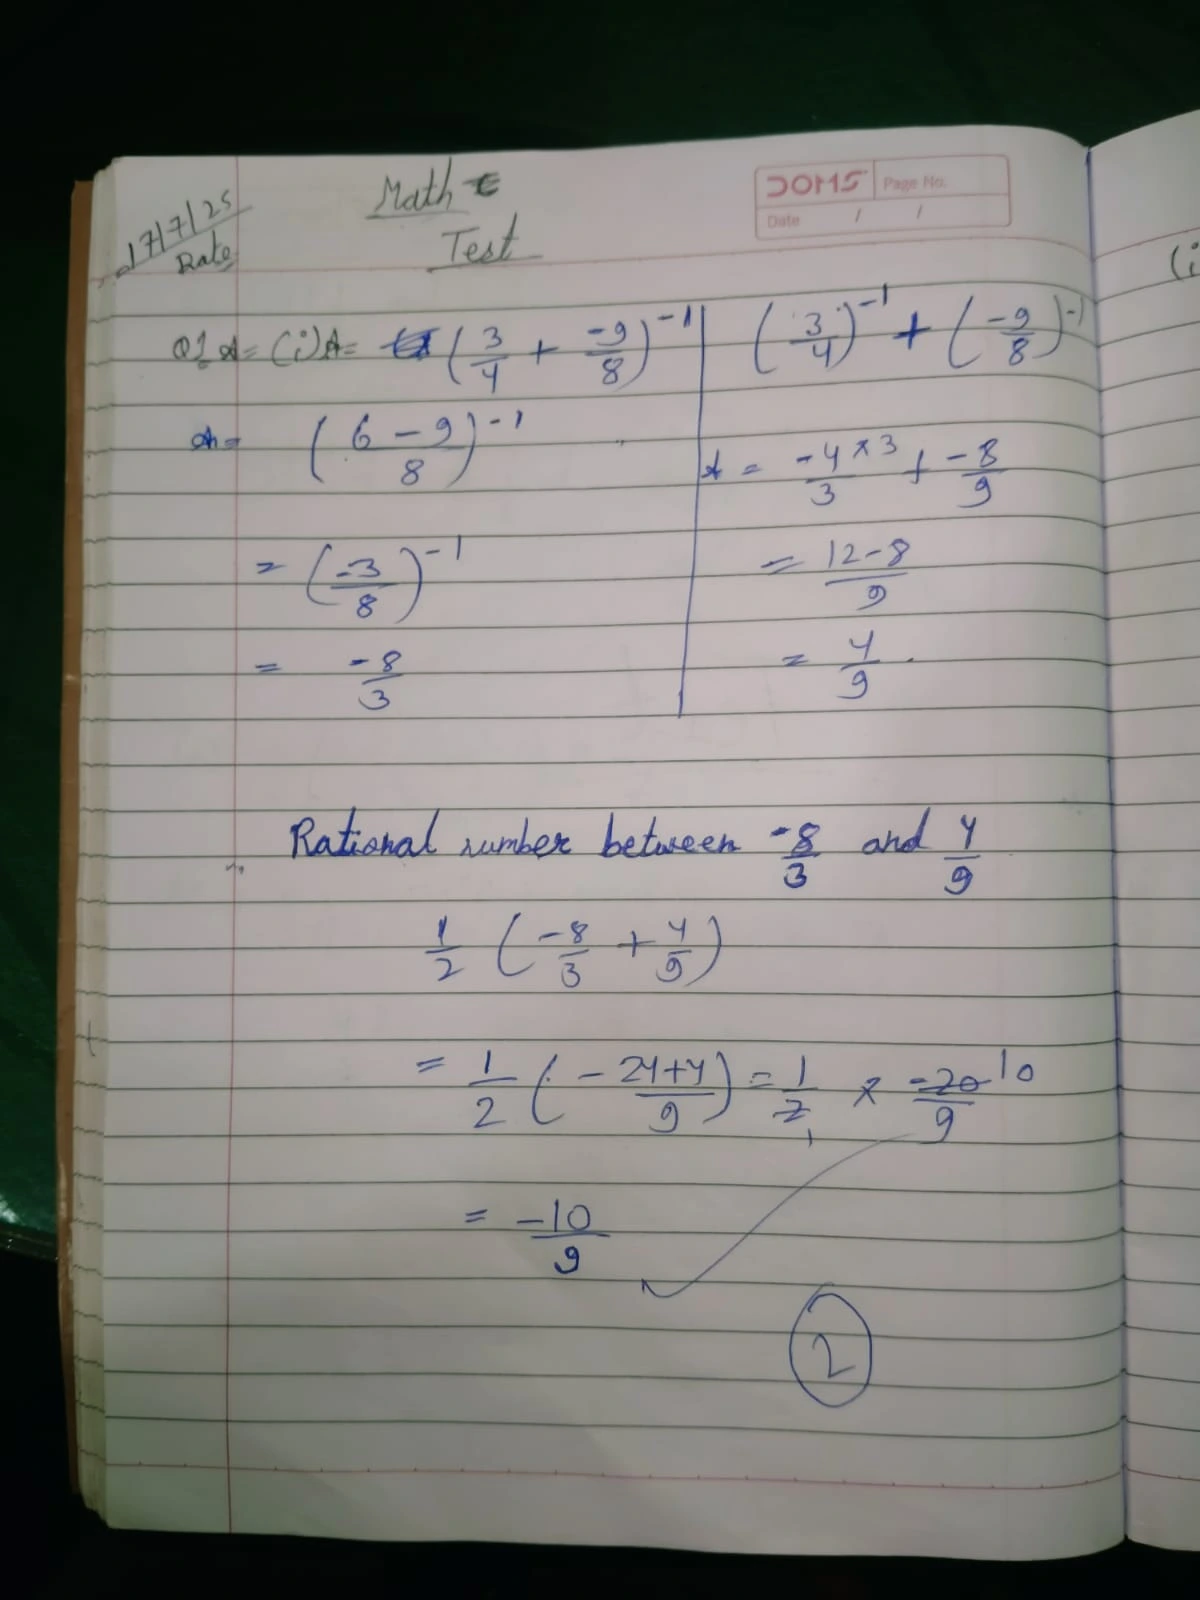 17/7/25
Rate
Math
Test
DOMS Page No.
Date / /
Q1 A= (i) A= (3/4 + -9/8)^-1 | (3/4)^-1 + (-9/8)^-1
A= (6-9/8)^-1
A = -4×3/3 + -8/9
= (-3/8)^-1
= 12-8/9
= -8/3
= 4/9
Rational number between -8/3 and 4/9
1/2 (-8/3 + 4/9)
= 1/2 (-24+4/9) = 1/2 × -20/9 10
1
= -10/9
2
(i